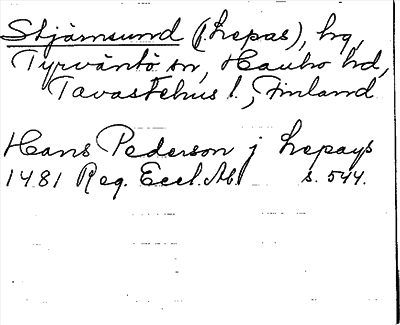 Stjärnsund (f. Lepas), hg,
Tyrväntö sn, Hauho hd,
Tavastehus l., Finland
Hans Pederson j Lepays
1481 Reg. Eccl. Ab. s. 544.